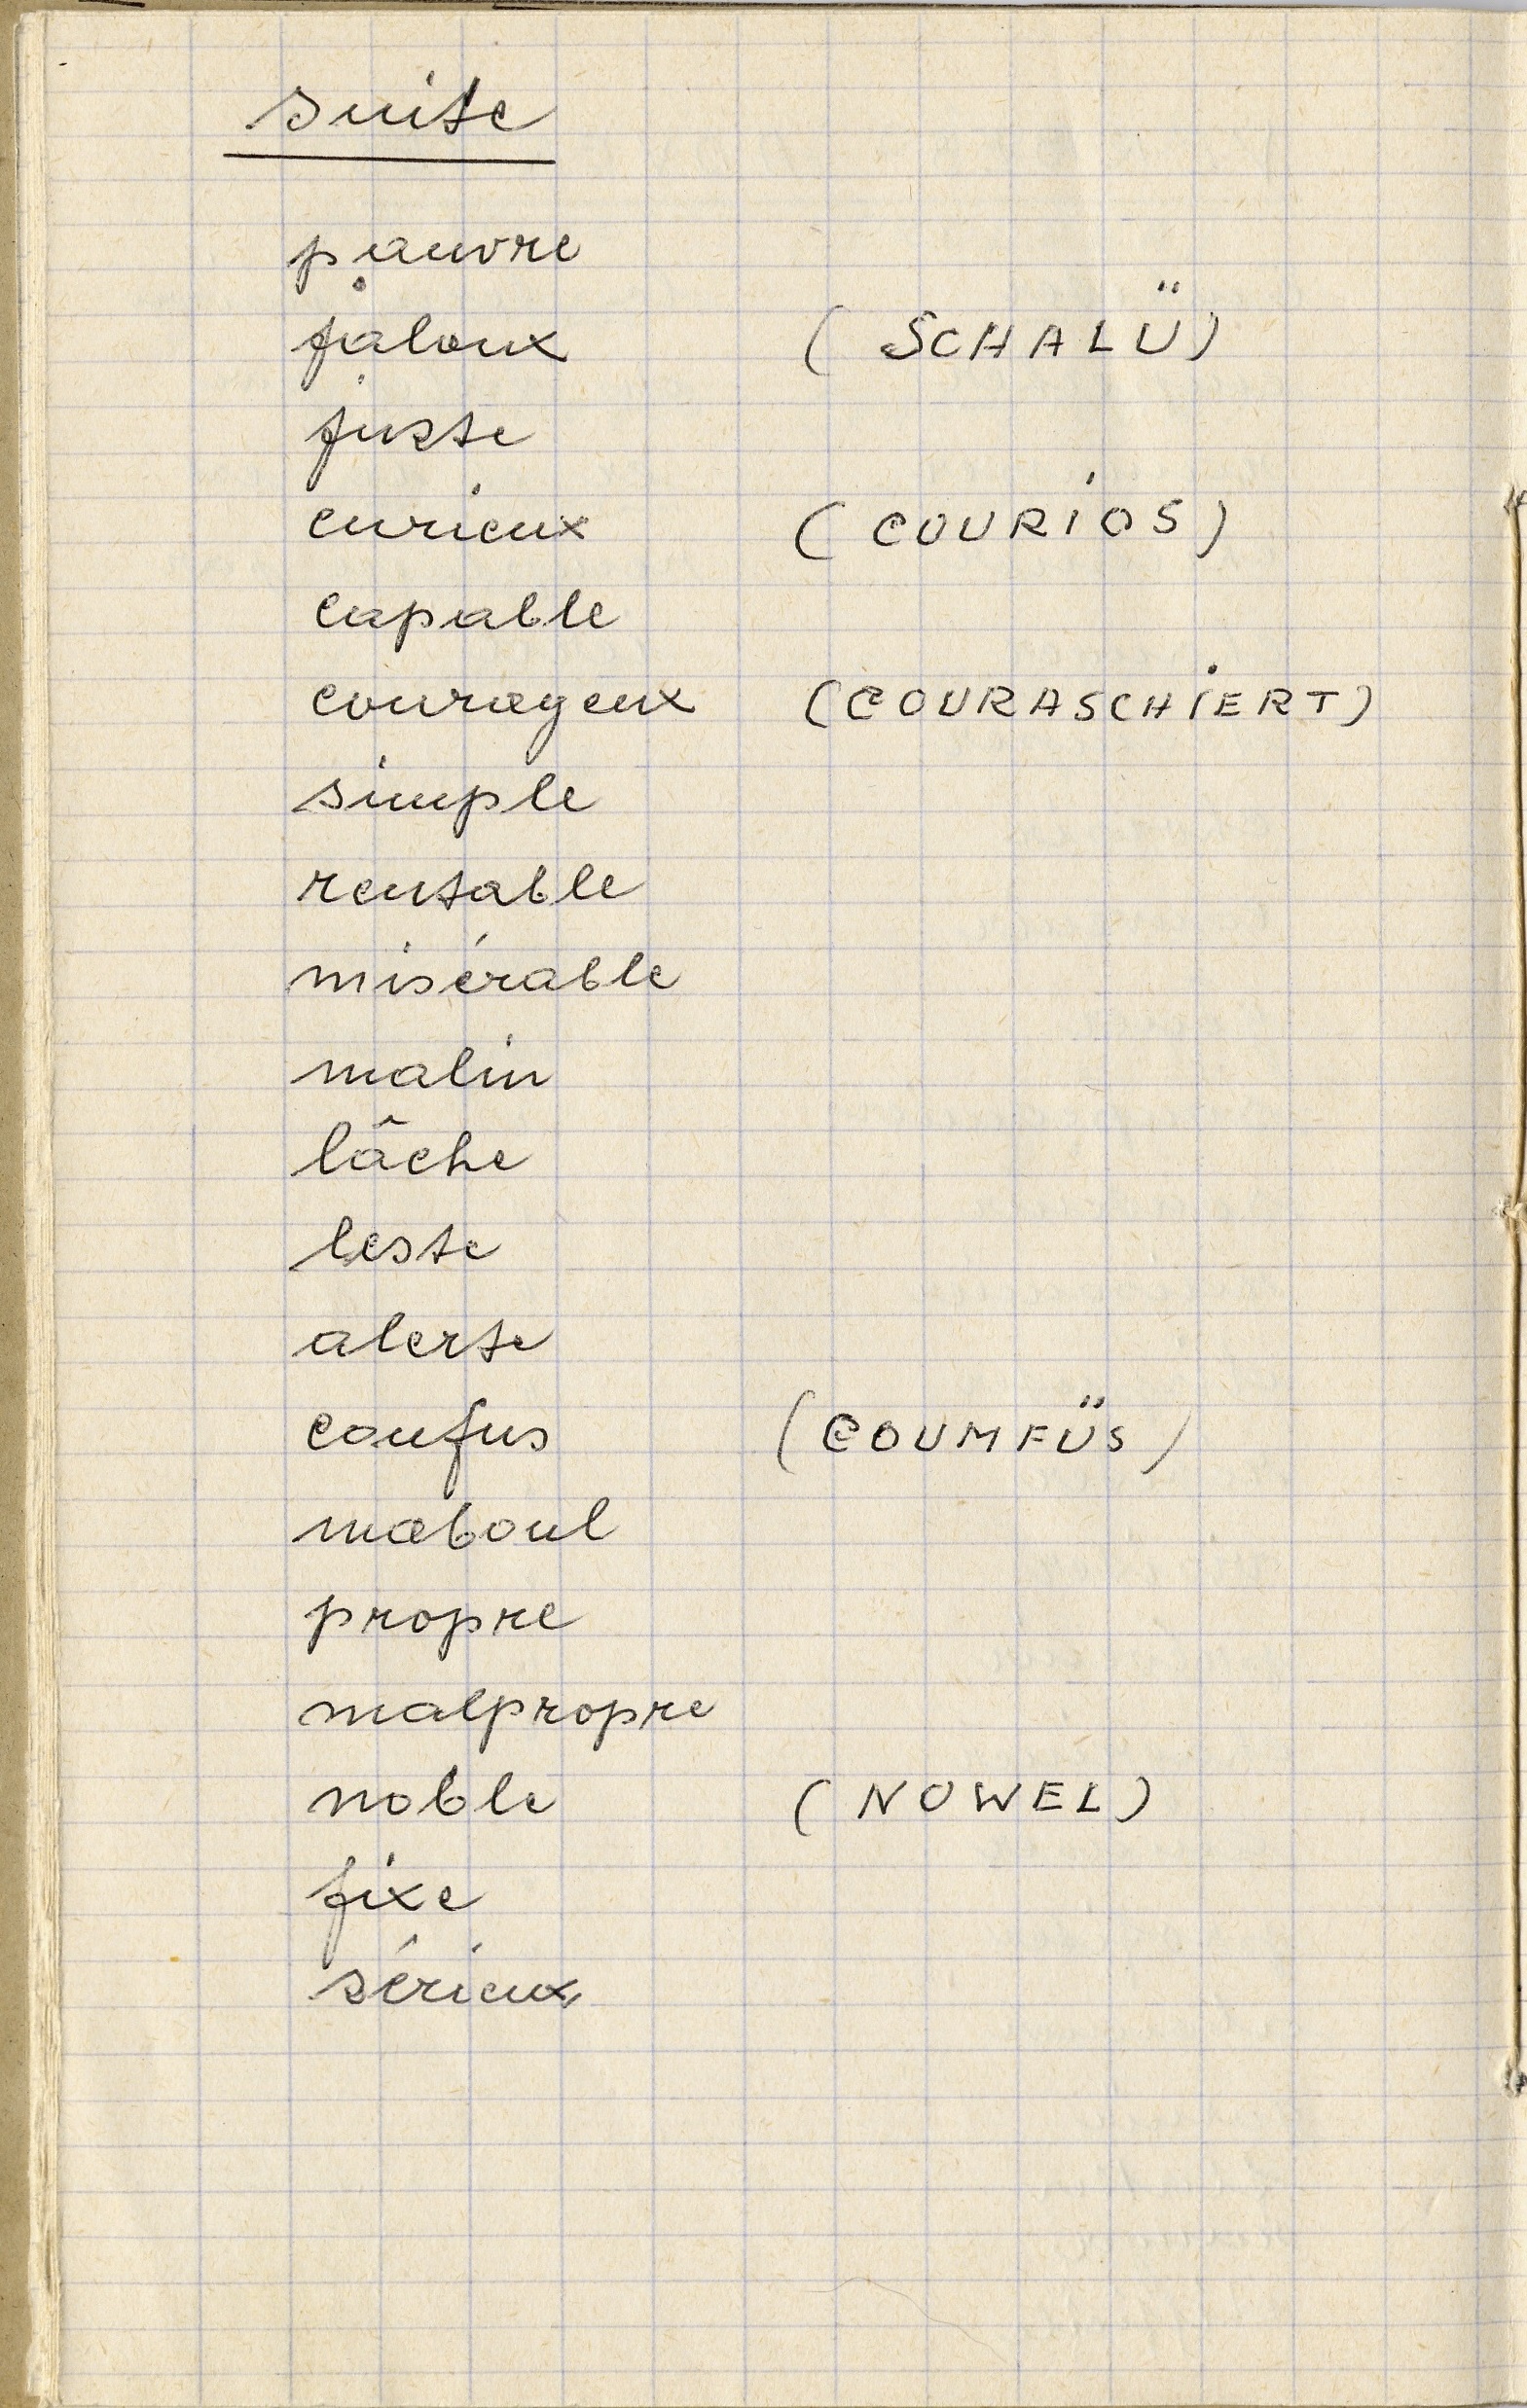 suite
pauvre
jaloux (SCHALÜ)
juste
curieux (COURIOS)
capable
courageux (COURASCHIERT)
simple
rentable
misérable
malin
lâche
leste
alerte
confus (COUMFÜS)
maboul
propre
malpropre
noble (NOWEL)
fixe
sérieux